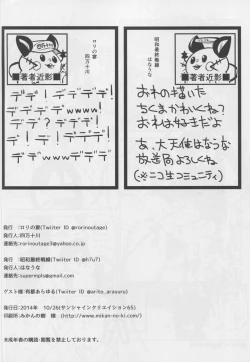 昭和最終戦線
はならな
■著者近影■
おれの描いた
ちくまかわいくね?
おれは好きだよ
あ、大天使はならな
放送局よろしくね。
(※ニコ生コミュニティ)
ロリの宴
四万十川
■著者近影■
デ!デデデデ!
デ!デwwデデ!
デデ?デデデ!
デデ!デデデ!
デ!デwwwデデデ!
発行 :ロリの宴(Twiiter ID @rorinoutage)
発行人:四万十川
連絡先:rorinoutage3@yahoo.co.jp
発行 :昭和最終戦線(Twiiter ID @h7u7)
発行人:はならな
連絡先:supermpls@gmail.com
ゲスト様:有都あらゆる(Twiiter ID @arito_arayuru)
発行日:2014年 10/26(サンシャインクリエイション65)
印刷所:みかんの樹 様 (http://www.mikan-no-ki.com/)
未成年者の購読・閲覧を禁止しております。